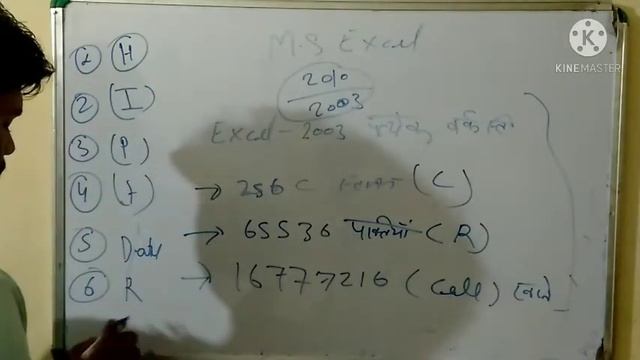 M.S Excel
2010
2003
Excel - 2003 प्रत्येक वर्कशीट
1 H
2 (I)
3 (P)
4 (f)
5 Data
6 R
→ 256 C (C)
→ 65536 पंक्तियाँ (R)
→ 16777216 (Cell)
KINEMASTER